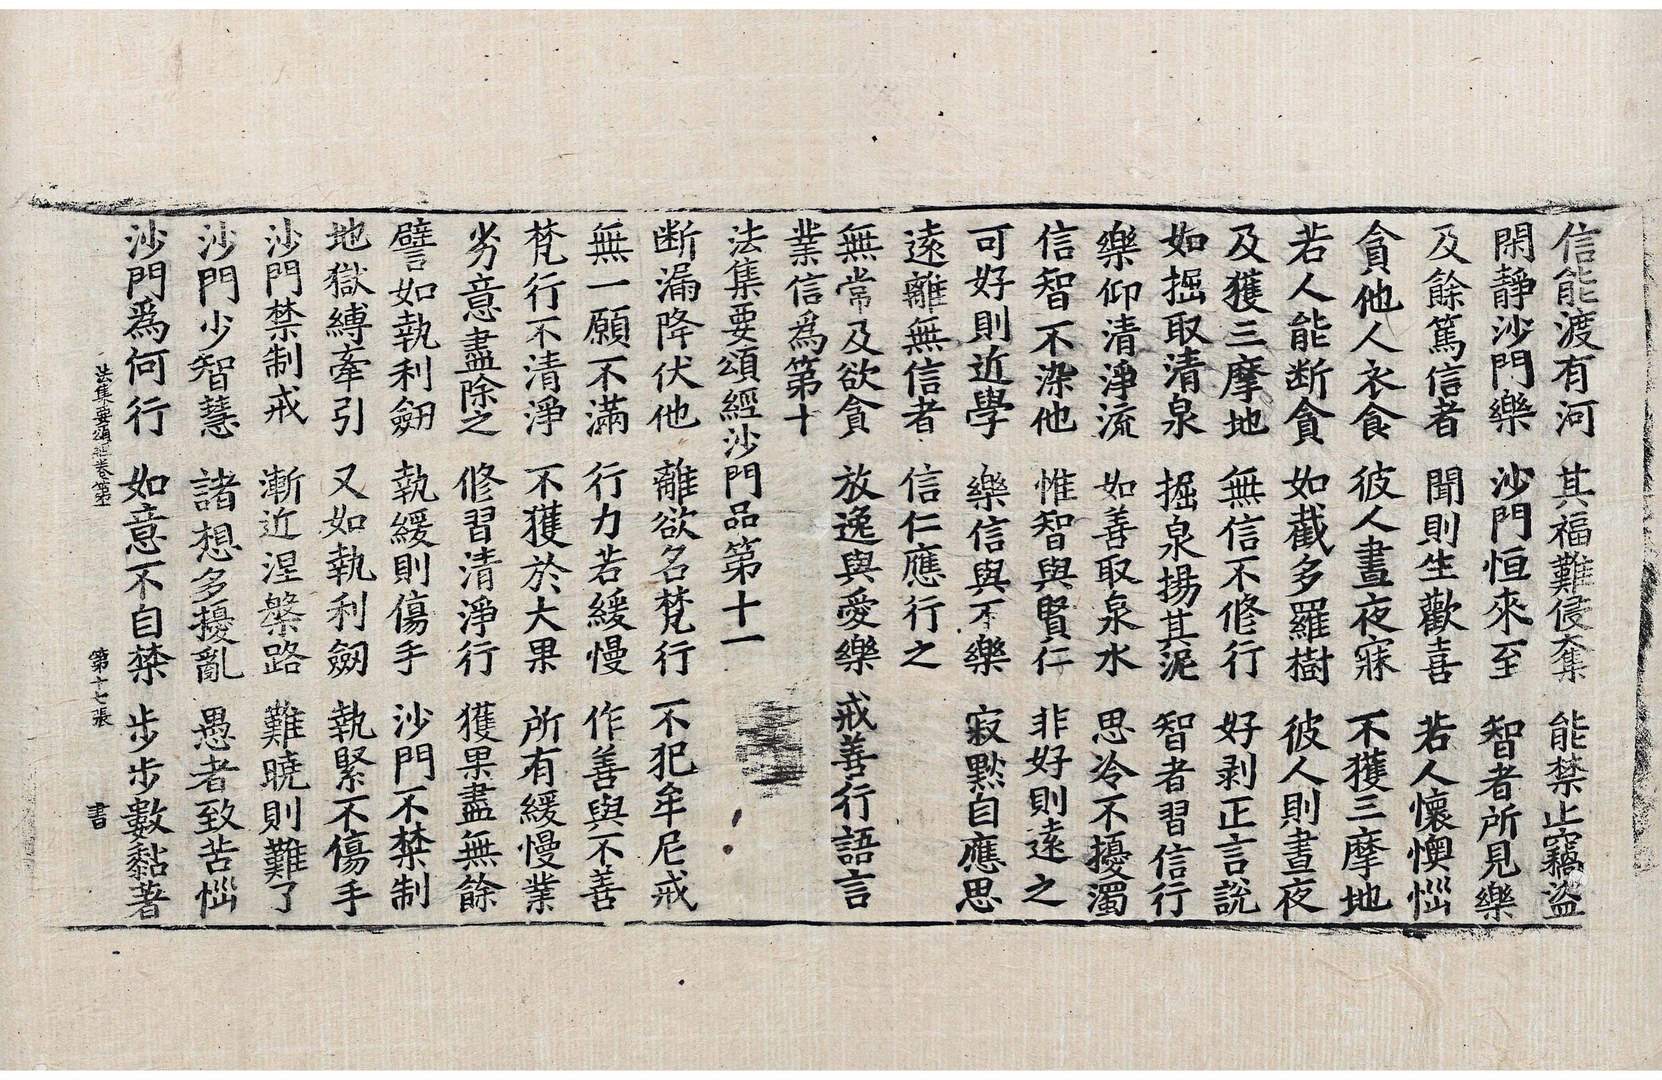 信能渡有河 其福難侵奪 能禁止竊盜
閑靜沙門樂 沙門恒來至 智者所見樂
及餘篤信者 聞則生歡喜 若人懷懊惱
貪他人衣食 彼人晝夜寐 不獲三摩地
若人能断貪 如截多羅樹 彼人則晝夜
及獲三摩地 無信不修行 好剥正言說
如掘取清泉 掘泉揚其泥 智者習信行
樂仰清淨流 如善取泉水 思冷不擾濁
信智不染他 惟智與賢仁 非好則遠之
可好則近學 樂信與不樂 寂默自應思
遠離無信者 信仁應行之
無常及欲貪 放逸與愛樂 戒善行語言
業信為第十
法集要頌經沙門品第十一
断漏降伏他 離欲名梵行 不犯牟尼戒
無一願不滿 行力若緩慢 作善與不善
梵行不清淨 不獲於大果 所有緩慢業
劣意盡除之 修習清淨行 獲果盡無餘
譬如執利劒 執緩則傷手 沙門不禁制
地獄縛牽引 又如執利劒 執緊不傷手
沙門禁制戒 漸近涅槃路 難曉則難了
沙門少智慧 諸想多擾亂 愚者致苦惱
沙門為何行 如意不自禁 步步數黏著
法集要頌經卷第一 第十七張 書